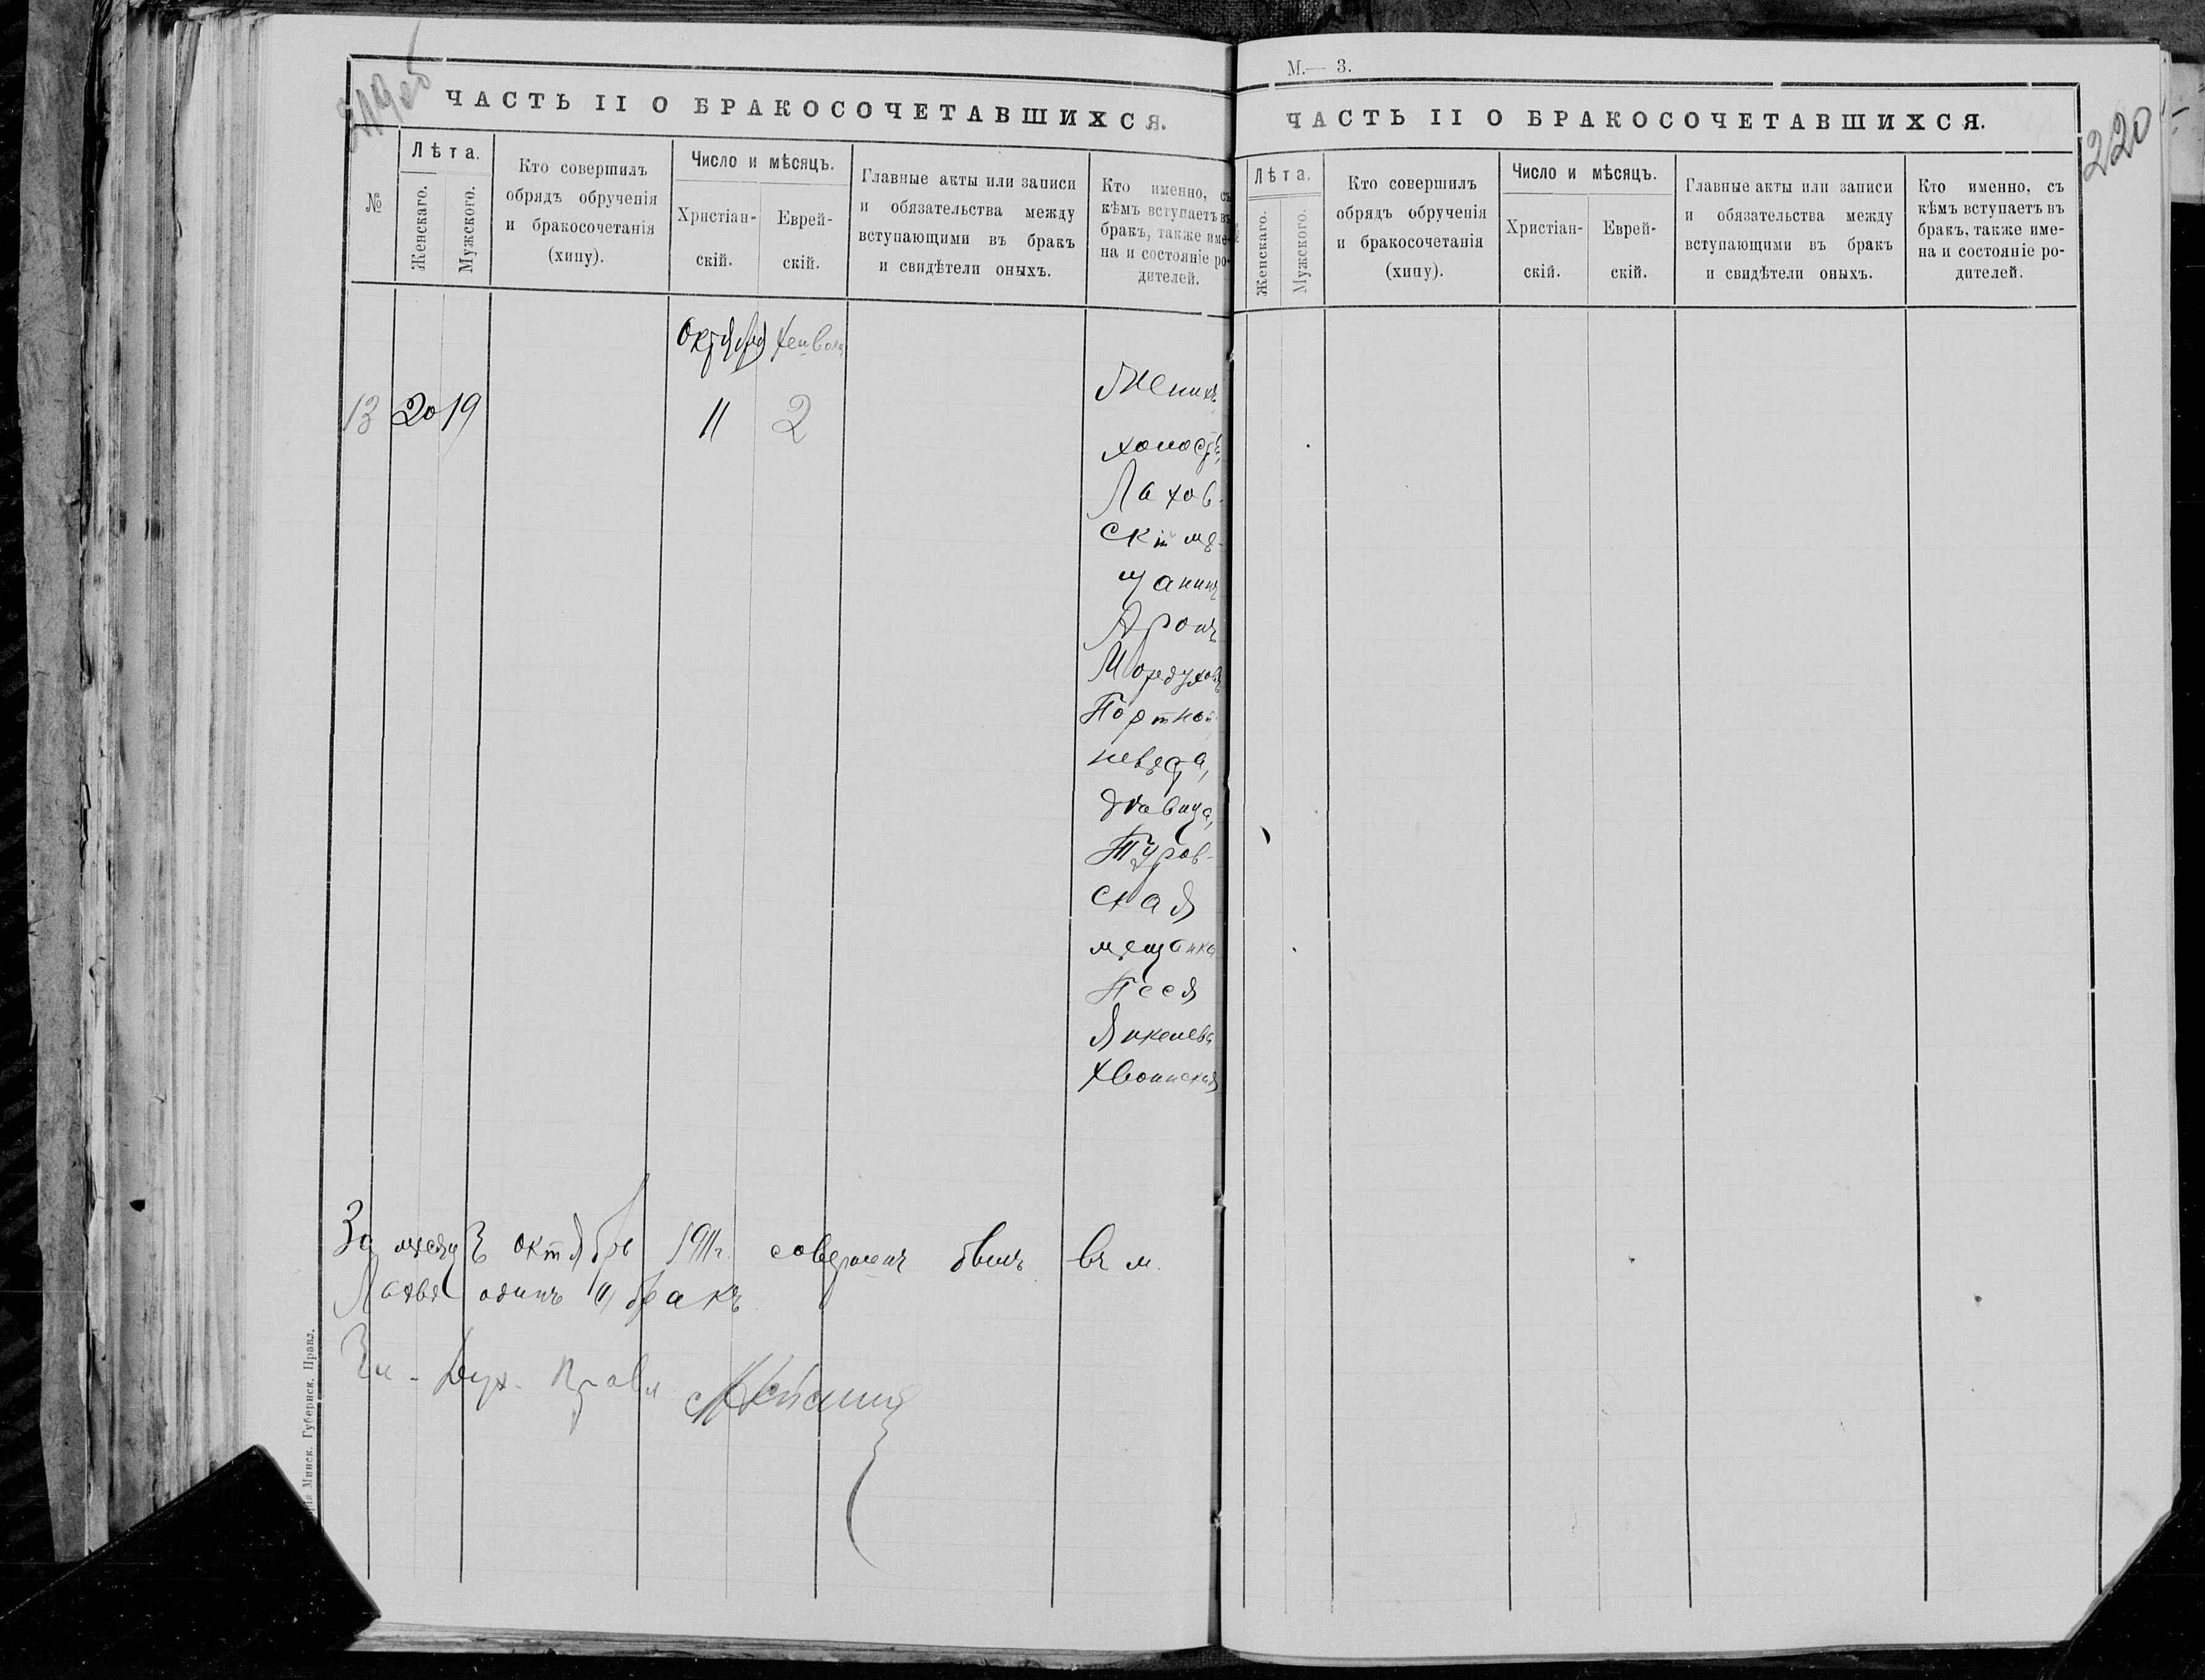 219об
ЧАСТЬ II О БРАКОСОЧЕТАВШИХСЯ.
№
Лѣта.
Женскаго.
Мужского.
Кто совершилъ
обрядъ обрученія
и бракосочетанія
(хипу).
Число и мѣсяцъ.
Христіан-
скій.
Еврей-
скій.
Главные акты или записи
и обязательства между
вступающими въ бракъ
и свидѣтели оныхъ.
Кто именно, съ
кѣмъ вступаетъ въ
бракъ, также име-
на и состояніе ро-
дителей.
Октября
13 20 19 11 2
Женихъ
холостъ,
Лахов-
скій мѣ-
щанинъ
Аронъ
Мордухов
Портной
невѣста,
дѣвица,
Туров-
ская
мѣщанка
Песя
Янкелева
Хвоинская
За месяцъ октябрь 1911г. совершенъ былъ въ м.
Лахвѣ одинъ бракъ
Чл. Дух. Правл
рія Минск. Губернск. Правл.
М.— 3.
220
ЧАСТЬ II О БРАКОСОЧЕТАВШИХСЯ.
Лѣта.
Женскаго.
Мужского.
Кто совершилъ
обрядъ обрученія
и бракосочетанія
(хипу).
Число и мѣсяцъ.
Христіан-
скій.
Еврей-
скій.
Главные акты или записи
и обязательства между
вступающими въ бракъ
и свидѣтели оныхъ.
Кто именно, съ
кѣмъ вступаетъ въ
бракъ, также име-
на и состояніе ро-
дителей.